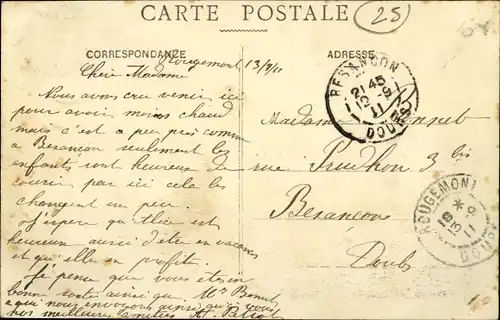 CARTE POSTALE
25
CORRESPONDANCE
ADRESSE
Rougemont 13/9/11
Chère Madame
Nous avons cru venir ici
pour avoir moins chaud
mais c'est a peu près comme
a Besançon seulement les
enfants sont heureux de
courir par ici cela les
changent un peu.
J'espère qu'Alice est
heureuse aussi d'être en vacances
et qu'elle en profite.
Je pense que vous êtes en
bonne santé ainsi que Mr
a qui nous envoyons ainsi qu'à vous
nos meilleures amitiés
Madame
rue Prudhon 3 bis
Besançon
Doubs
BESANÇON
21 45
12 - 9
11
DOUBS
ROUGEMONT
18 *
13 9
11
DOUBS